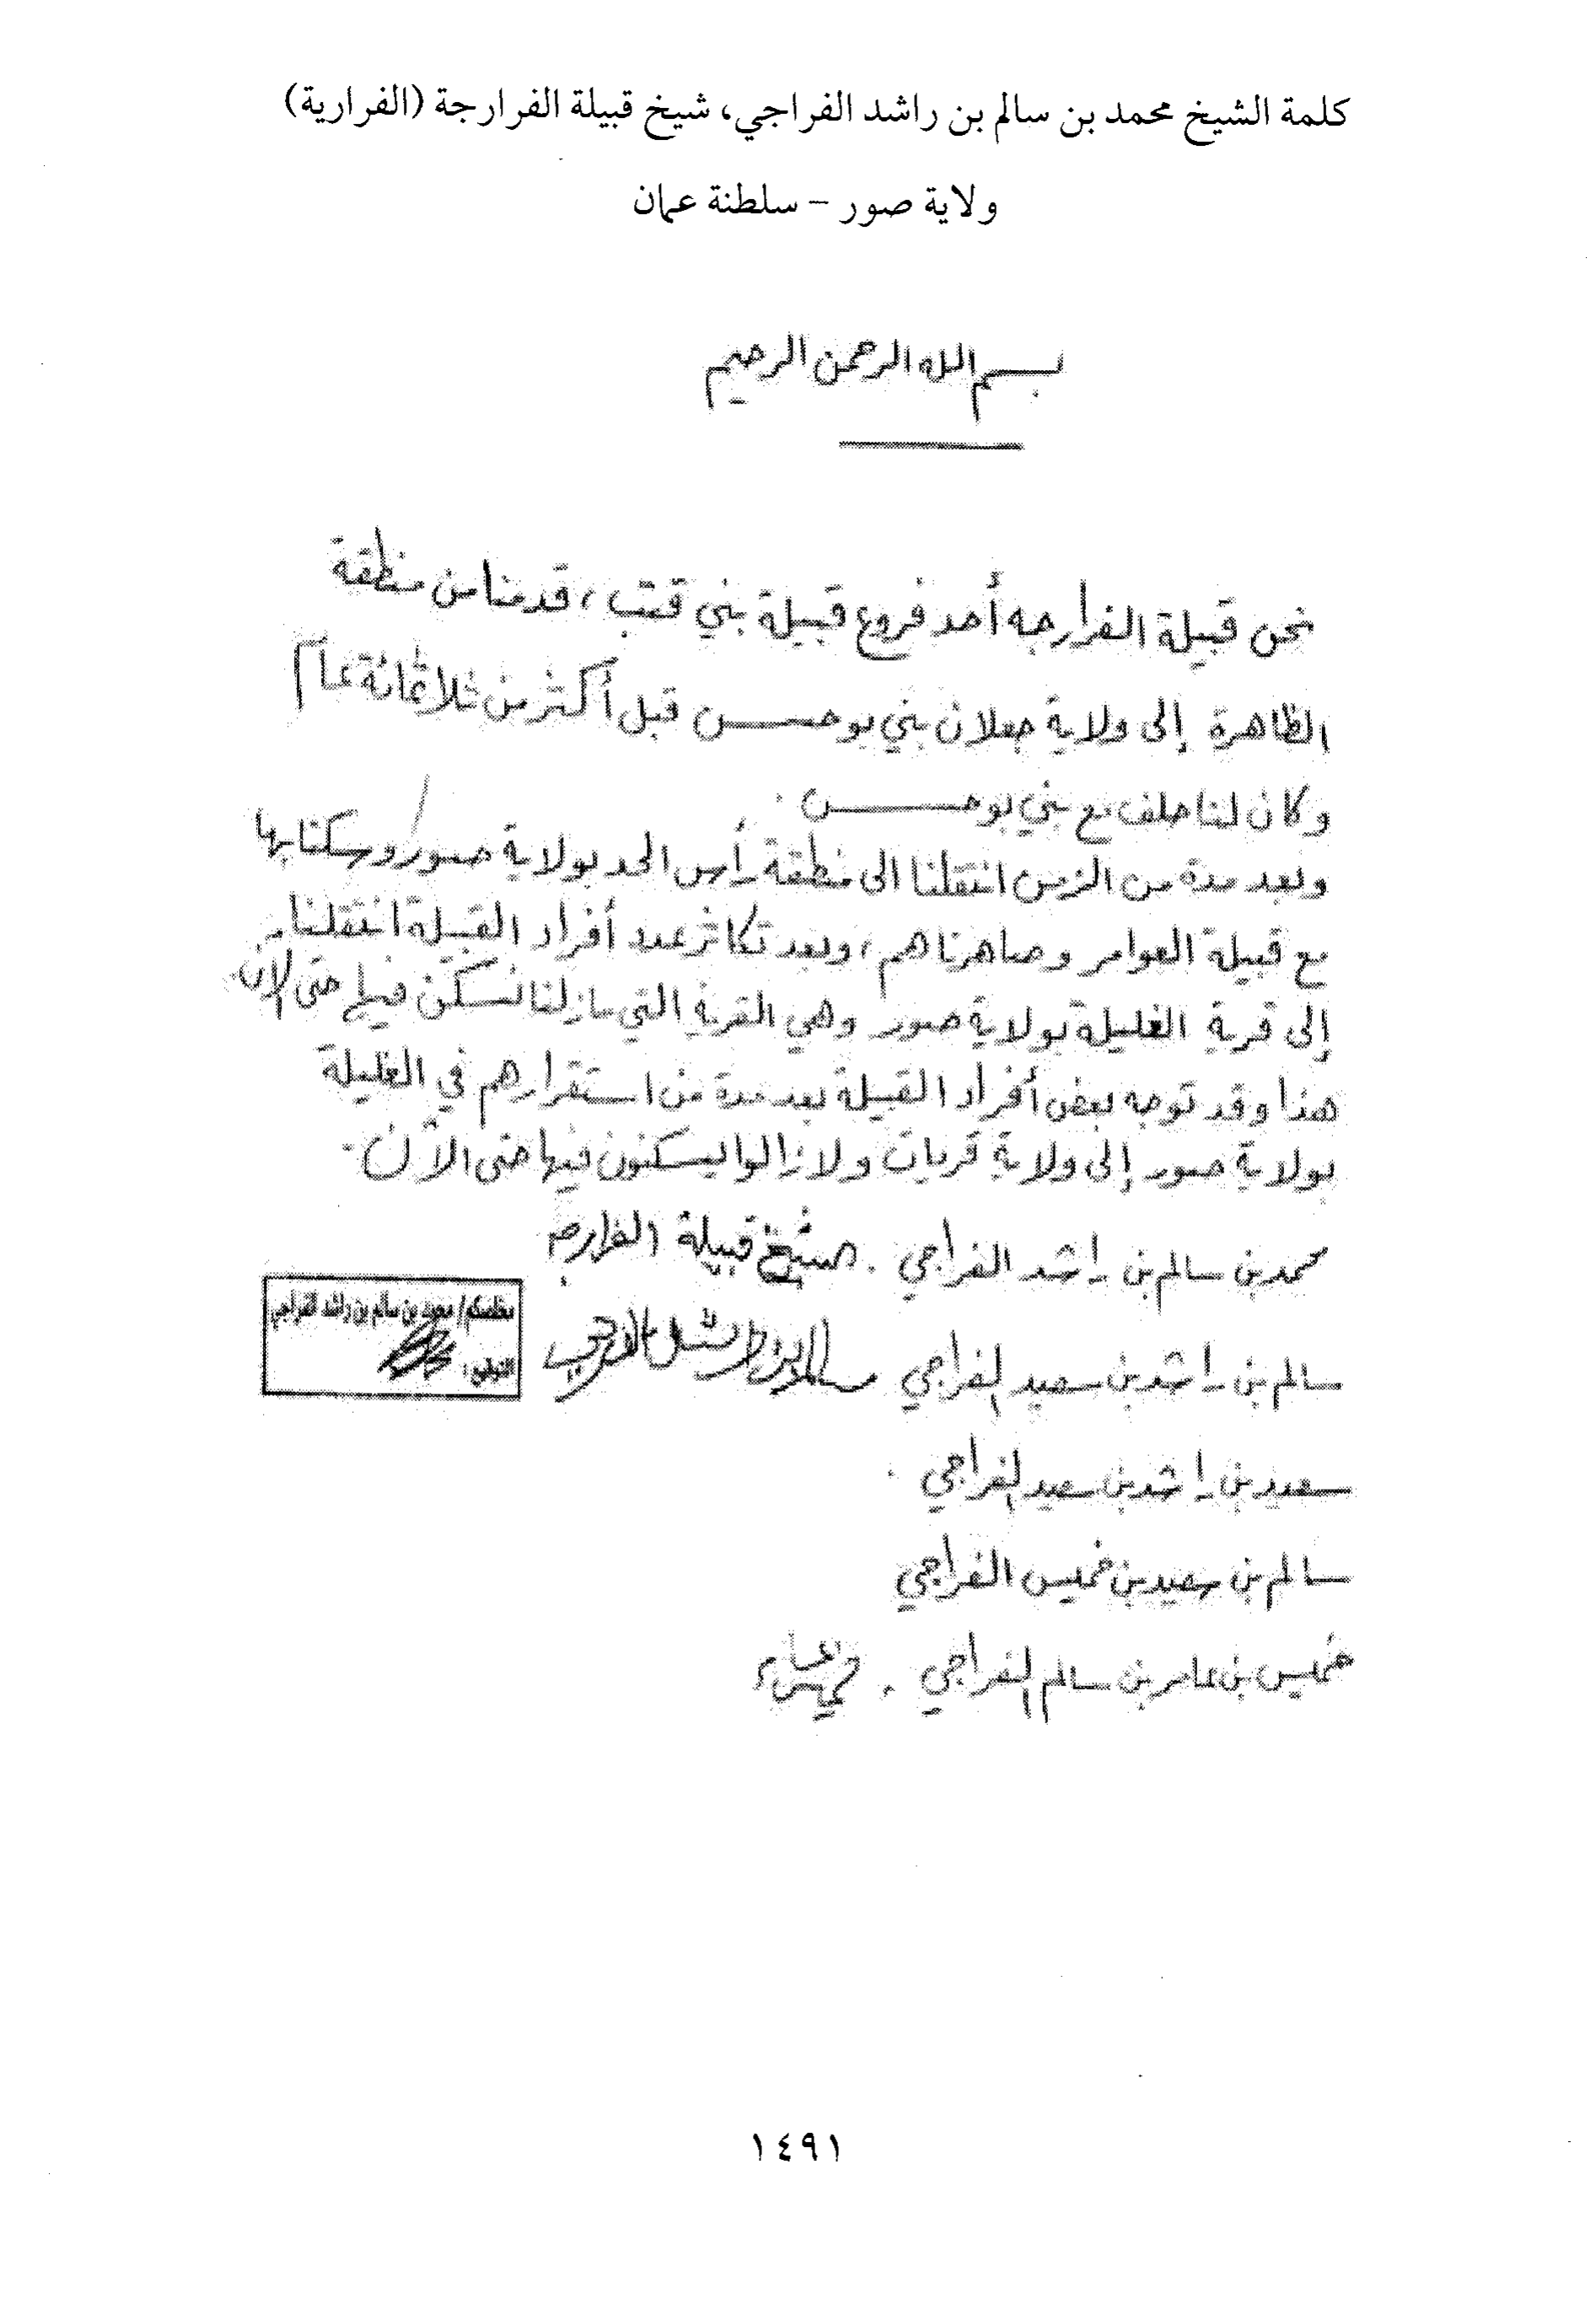 كلمة الشيخ محمد بن سالم بن راشد الفراجي، شيخ قبيلة الفرارجة (الفرارية)
ولاية صور – سلطنة عمان
بسم الله الرحمن الرحيم
نحن قبيلة الفرارجه أحد فروع قبيلة بني قتب، قدمنا من منطقة
الظاهرة إلى ولاية جعلان بني بوحسن قبل أكثر من ثلاثمائة عام
وكان لنا حلف مع بني بوحسن .
وبعد مدة من الزمن انتقلنا الى منطقة رأس الحد بولاية صور وسكنا بها
مع قبيلة العوامر وصاهرناهم، وبعد تكاثر عدد أفراد القبيلة انتقلنا
إلى قرية الغليلة بولاية صور وهي القرية التي مازلنا نسكن فيها حتى الان
هذا وقد توجه بعض أفراد القبيلة بعد مدة من استقرارهم في الغليلة
بولاية صور إلى ولاية قريات ولازالوا يسكنون فيها حتى الآن .
محمد بن سالم بن راشد الفراجي . الشيخ قبيلة الفرارجه
مخلصكم / محمد بن سالم بن راشد الفراجي
التوقيع :
سالم بن راشد بن سعيد الفراجي سالم بن راشد الفراجي
سعيد بن راشد بن سعيد الفراجي .
سالم بن سعيد بن خميس الفراجي
خميس بن عامر بن سالم الفراجي .
١٤٩١